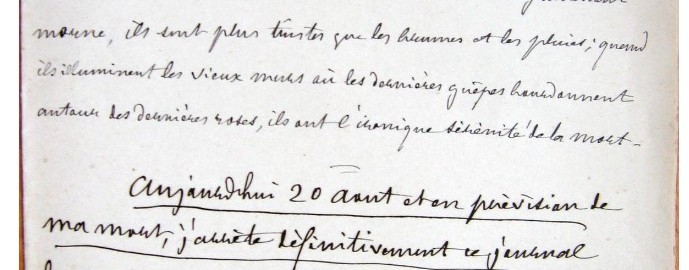 morne, ils sont plus tristes que les brumes et les pluies ; quand
ils illuminent les vieux murs où les dernières guêpes bourdonnent
autour des dernières roses, ils ont l'ironique sérénité de la mort -
Aujourdhui 20 aout et en prévision de
ma mort, j'arrête définitivement ce journal